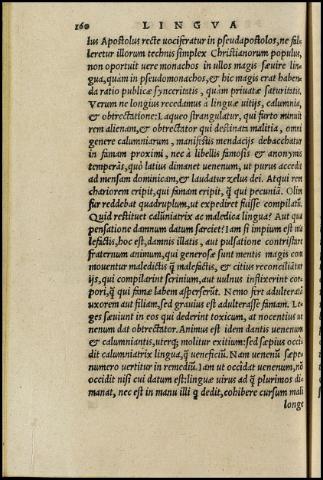 160 LINGVA
lus Apostolus recte uociferatur in pseudapostolos, ne fal-
leretur illorum technis simplex Christianorum populus,
non oportuit uere monachos in ullos magis sæuire lin-
gua, quàm in pseudomonachos, & hic magis erat haben-
da ratio publicæ synceritatis, quàm priuatæ saturitatis.
Verum ne longius recedamus à linguæ uitijs, calumnia,
& obtrectatione: Laqueo strangulatur, qui furto minuit
rem alienam, & obtrectator qui destinata malitia, omni
genere calumniarum, manifestis mendacijs debacchatur
in famam proximi, nec à libellis famosis & anonymis
temperãs, quò latius dimanet uenenum, ut purus accedit
ad mensam dominicam, & laudatur zelus dei. Atqui rem
chariorem eripit, qui famam eripit, q̃ qui pecuniã. Olim
fur reddebat quadruplum, ut expediret fuisse compilatũ.
Quid restituet calũniatrix ac maledica lingua? Aut qua
pensatione damnum datum sarciet? Iam si impium est ma
lefictis, hoc est, damnis illatis, aut pulsatione contristare
fraternum animum, qui generosæ sunt mentis magis com
mouentur maledictis q̃ malefictis, & citius reconciliãtur
ijs, qui compilarint scrinium, aut uulnus inflixerint cor-
pori, q̃ qui famæ labem asperserũt. Nemo fert adulterã
uxorem aut filiam, sed grauius est adulterasse famam. Le
ges sæuiunt in eos qui dederint toxicum, at nocentius ue
nenum dat obtrectator. Animus est idem dantis uenenum
& calumniantis, uterq; molitur exitium: sed sæpius occi
dit calumniatrix lingua, q̃ ueneficiũ. Nam uenenũ sæpe
numero uertitur in remediũ. Iam ut occidat uenenum, nõ
occidit nisi cui datum est: linguæ uirus ad q̃ plurimos di
manat, nec est in manu illi q dedit, cohibere cursum mali
longe